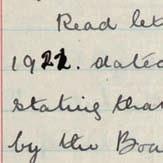 Read let
1922. dated
stating that
by the Boa